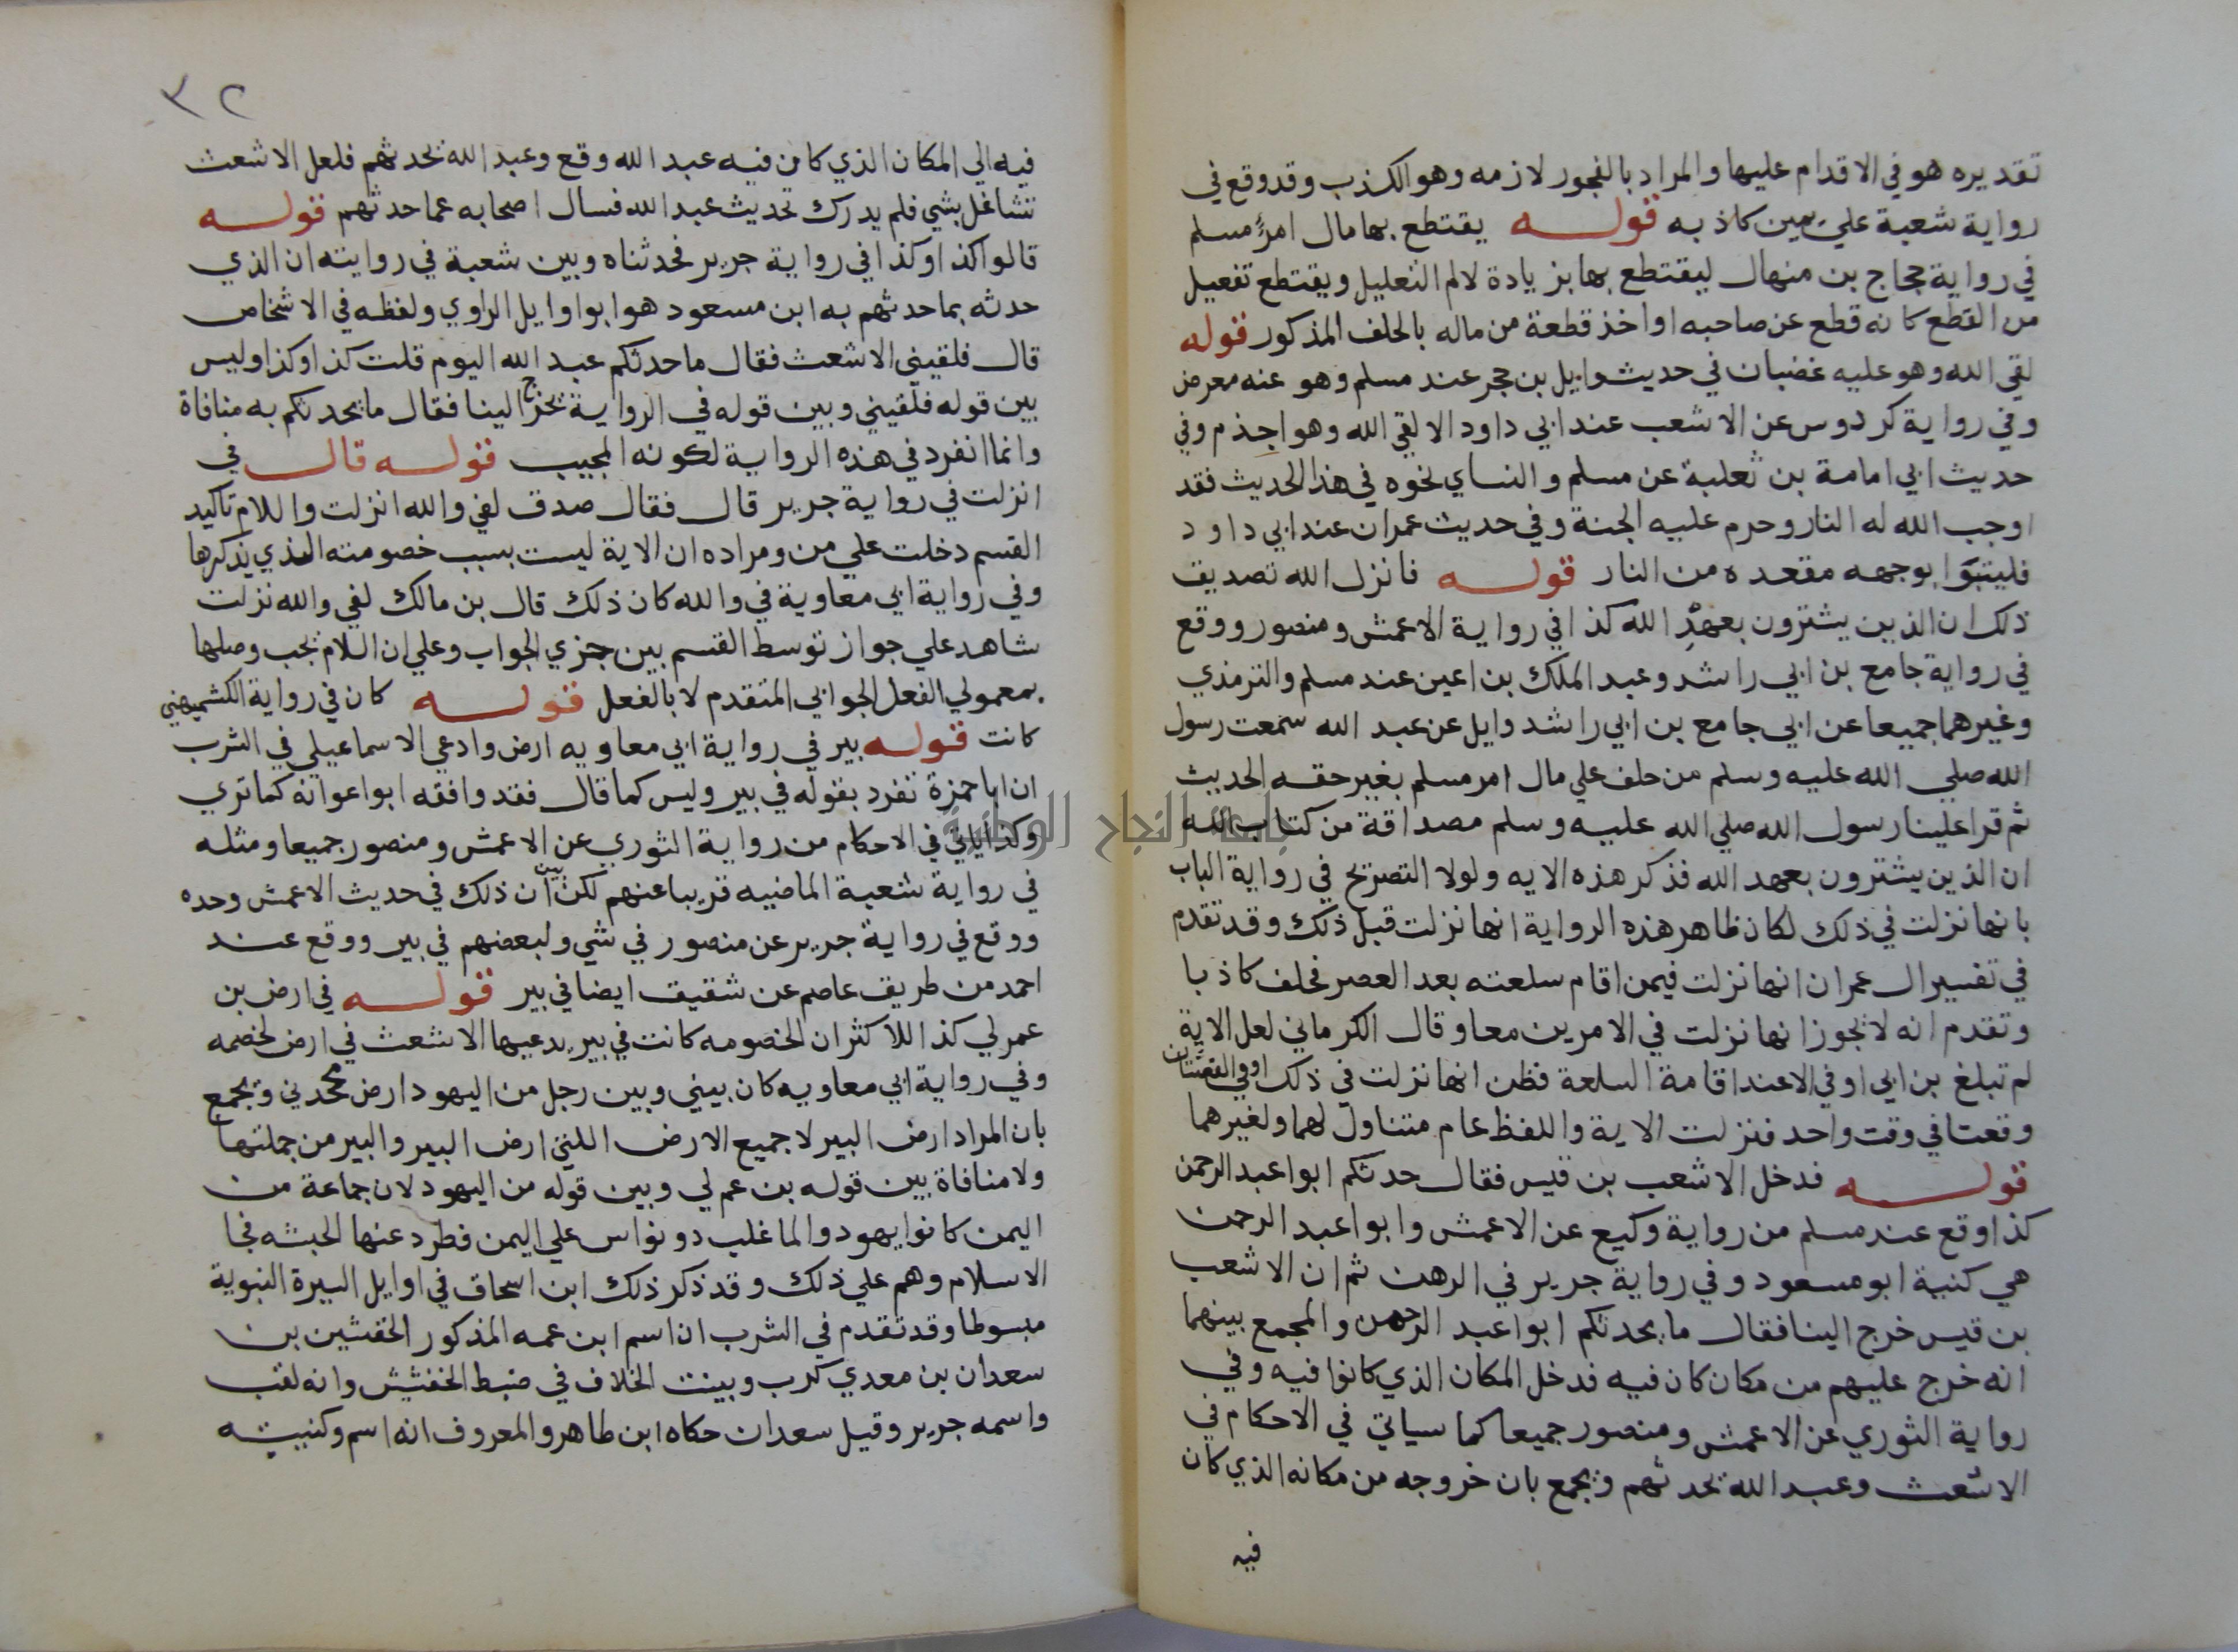 تقديره هو في الاقدام عليها والمراد بالفجور لازمه وهو الكذب وقد وقع في
رواية شعبة علي يمين كاذبه قوله يقتطع بها مال امرٍ مسلم
في رواية حجاج بن منهال ليقتطع بها بزيادة لام التعليل ويقتطع تفعيل
من القطع كانه قطع عن صاحبه او اخذ قطعة من ماله بالحلف المذكور قوله
لقي الله وهو عليه غضبان في حديث وايل بن حجر عند مسلم وهو عنه معرض
وفي رواية كردوس عن الاشعب عند ابي داود الا لقي الله وهو اجذم وفي
حديث ابي امامة بن ثعلبة عن مسلم والنساي نحوه في هذا الحديث فقد
اوجب الله له النار وحرم عليه الجنة وفي حديث عمران عند ابي داود
فليتبوا بوجهه مقعده من النار قوله فانزل الله تصديق
ذلك ان الذين يشترون بعهدِ الله كذا في رواية الاعمش ومنصور ووقع
في رواية جامع بن ابي راشد وعبد الملك بن اعين عند مسلم والترمذي
وغيرهما جميعا عن ابي جامع بن ابي راشد وايل عن عبد الله سمعت رسول
الله صلي الله عليه وسلم من حلف علي مال امر مسلم بغير حقه الحديث
ثم قرا علينا رسول الله صلي الله عليه وسلم مصداقة من كتاب الله
ان الذين يشترون بعهد الله فذكر هذه الايه ولولا التصريح في رواية الباب
بانها نزلت في ذلك لكان ظاهر هذه الرواية انها نزلت قبل ذلك وقد تقدم
في تفسير ال عمران انها نزلت فيمن اقام سلعته بعد العصر فحلف كاذبا
وتقدم انه لا يجوز انها نزلت في الامرين معا وقال الكرماني لعل الاية
لم تبلغ بن ابي اوفي الا عند اقامة السلعة فظن انها نزلت في ذلك او في القصتان
وقعتا في وقت واحد فنزلت الاية واللفظ عام متناول لهما ولغيرهما
قوله فدخل الاشعب بن قيس فقال حدثكم ابوا عبد الرحمن
كذا وقع عند مسلم من رواية وكيع عن الاعمش وابوا عبد الرحمن
هي كنية ابو مسعود وفي رواية جرير في الرهن ثم ان الاشعب
بن قيس خرج الينا فقال ما يحدثكم ابوا عبد الرحمن والمجمع بينهما
انه خرج عليهم من مكان كان فيه فدخل المكان الذي كانوا فيه وفي
رواية الثوري عن الاعمش ومنصور جميعا كما سياتي في الاحكام في
الاشعث وعبد الله يحدثهم ويجمع بان خروجه من مكانه الذي كان
فيه
٣٢
فيه الي المكان الذي كان فيه عبد الله وقع وعبد الله يحدثهم فلعل الاشعث
تشاغل بشي فلم يدرك تحديث عبد الله فسال اصحابه عما حدثهم قوله
قالوا كذا وكذا في رواية جرير فحدثناه وبين شعبة في روايته ان الذي
حدثه بما حدثهم به ابن مسعود هو ابوا وايل الراوي ولفظه في الاشخاص
قال فلقيني الاشعث فقال ما حدثكم عبد الله اليوم قلت كذا وكذا وليس
بين قوله فلقيني وبين قوله في الرواية يخرج الينا فقال ما يحدثكم به منافاة
وانما انفرد في هذه الرواية لكونه المجيب قوله قال في
انزلت في رواية جرير قال فقال صدق لفي والله انزلت واللام تاكيد
القسم دخلت علي من ومراده ان الاية ليست بسبب خصومته الذي يذكرها
وفي رواية ابي معاوية في والله كان ذلك قال بن مالك لفي والله نزلت
شاهد علي جواز توسط القسم بين جزي الجواب وعلي ان اللام يجب وصلها
بمعمولي الفعل الجوابي المتقدم لا بالفعل قوله كان في رواية الكشميهني
كانت قوله بير في رواية ابي معاويه ارض وادعي الاسماعيلي في الشرب
ان ابا حمزة تفرد بقوله في بير وليس كما قال فقد وافقه ابوا عوانة كما تري
وكذا ياتي في الاحكام من رواية الثوري عن الاعمش ومنصور جميعا ومثله
في رواية شعبة الماضيه قريبا عنهم لكن بين ان ذلك في حديث الاعمش وحده
ووقع في رواية جرير عن منصور في شي ولبعضهم في بير ووقع عند
احمد من طريق عاصم عن شقيق ايضا في بير قوله في ارض بن
عم لي كذا للاكثر ان الخصومه كانت في بير يدعيها الاشعث في ارض لخصمه
وفي رواية ابي معاويه كان بيني وبين رجل من اليهود ارض فجحدني ويجمع
بان المراد ارض البير لا جميع الارض اللتي ارض البير والبير من جملتها
ولا منافاة بين قوله بن عم لي وبين قوله من اليهود لان جماعة من
اليمن كانوا يهود والما غلب ذو نواس علي اليمن فطرد عنها الحبشه فجا
الاسلام وهم علي ذلك وقد ذكر ذلك ابن اسحاق في اوايل السيرة النبوية
مبسوطا وقد تقدم في الشرب ان اسم ابن عمه المذكور الخفشين بن
سعدان بن معدي كرب وبينت الخلاف في ضبط الخفشيش وانه لقب
واسمه جرير وقيل سعدان حكاه ابن طاهر والمعروف انه اسم وكنيته
جامعة النجاح الوطنية